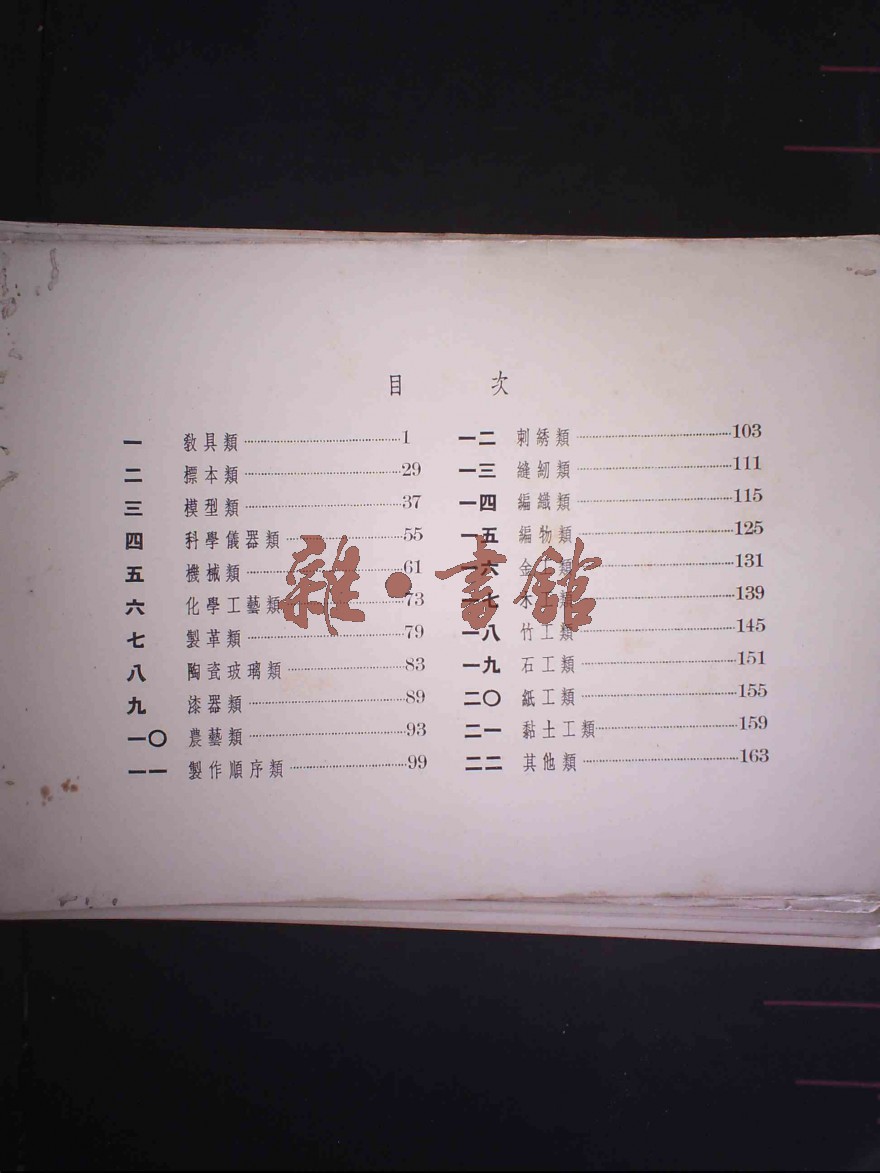 目 次
一 教具類 1
二 標本類 29
三 模型類 37
四 科學儀器類 55
五 機械類 61
六 化學工藝類 73
七 製革類 79
八 陶瓷玻璃類 83
九 漆器類 89
一〇 農藝類 93
一一 製作順序類 99
一二 刺綉類 103
一三 縫紉類 111
一四 編織類 115
一五 編物類 125
一六 金工類 131
一七 木工類 139
一八 竹工類 145
一九 石工類 151
二〇 紙工類 155
二一 黏土工類 159
二二 其他類 163
雜·書館